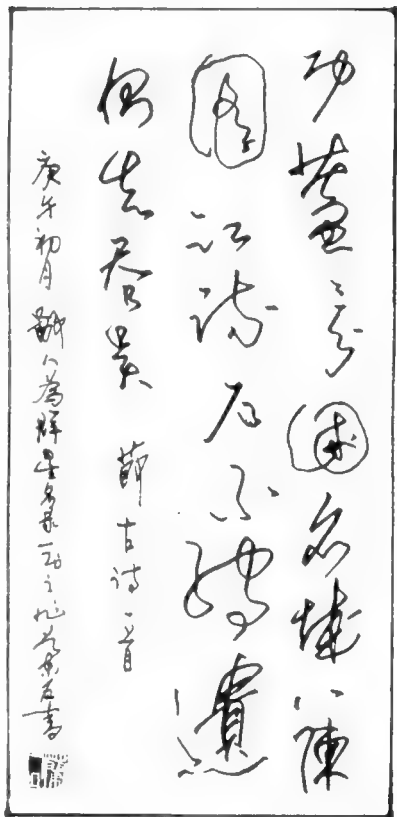 功蓋三分國名成八陣
圖江流石不轉遺
恨失吞吳 節古詩一首
庚午初月 為群星 書